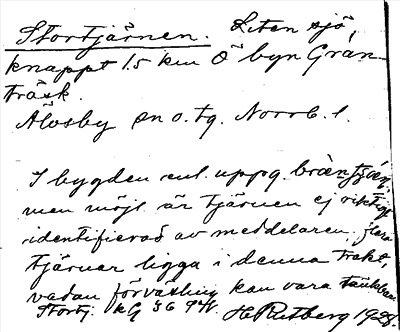 Stortjärnen. Liten sjö,
knappt 1.5 km Ö byn Gran-
träsk.
Älvsby sn o. tg. Norrb. l.
I bygden enl. uppg. bräntjärn,
men möjl. är tjärnen ej riktigt
identifierad av meddelaren, flera
tjärnar ligga i denna trakt,
vadan förväxling kan vara tänkbar.
Stortj. kg 56
H Rutberg 1928.